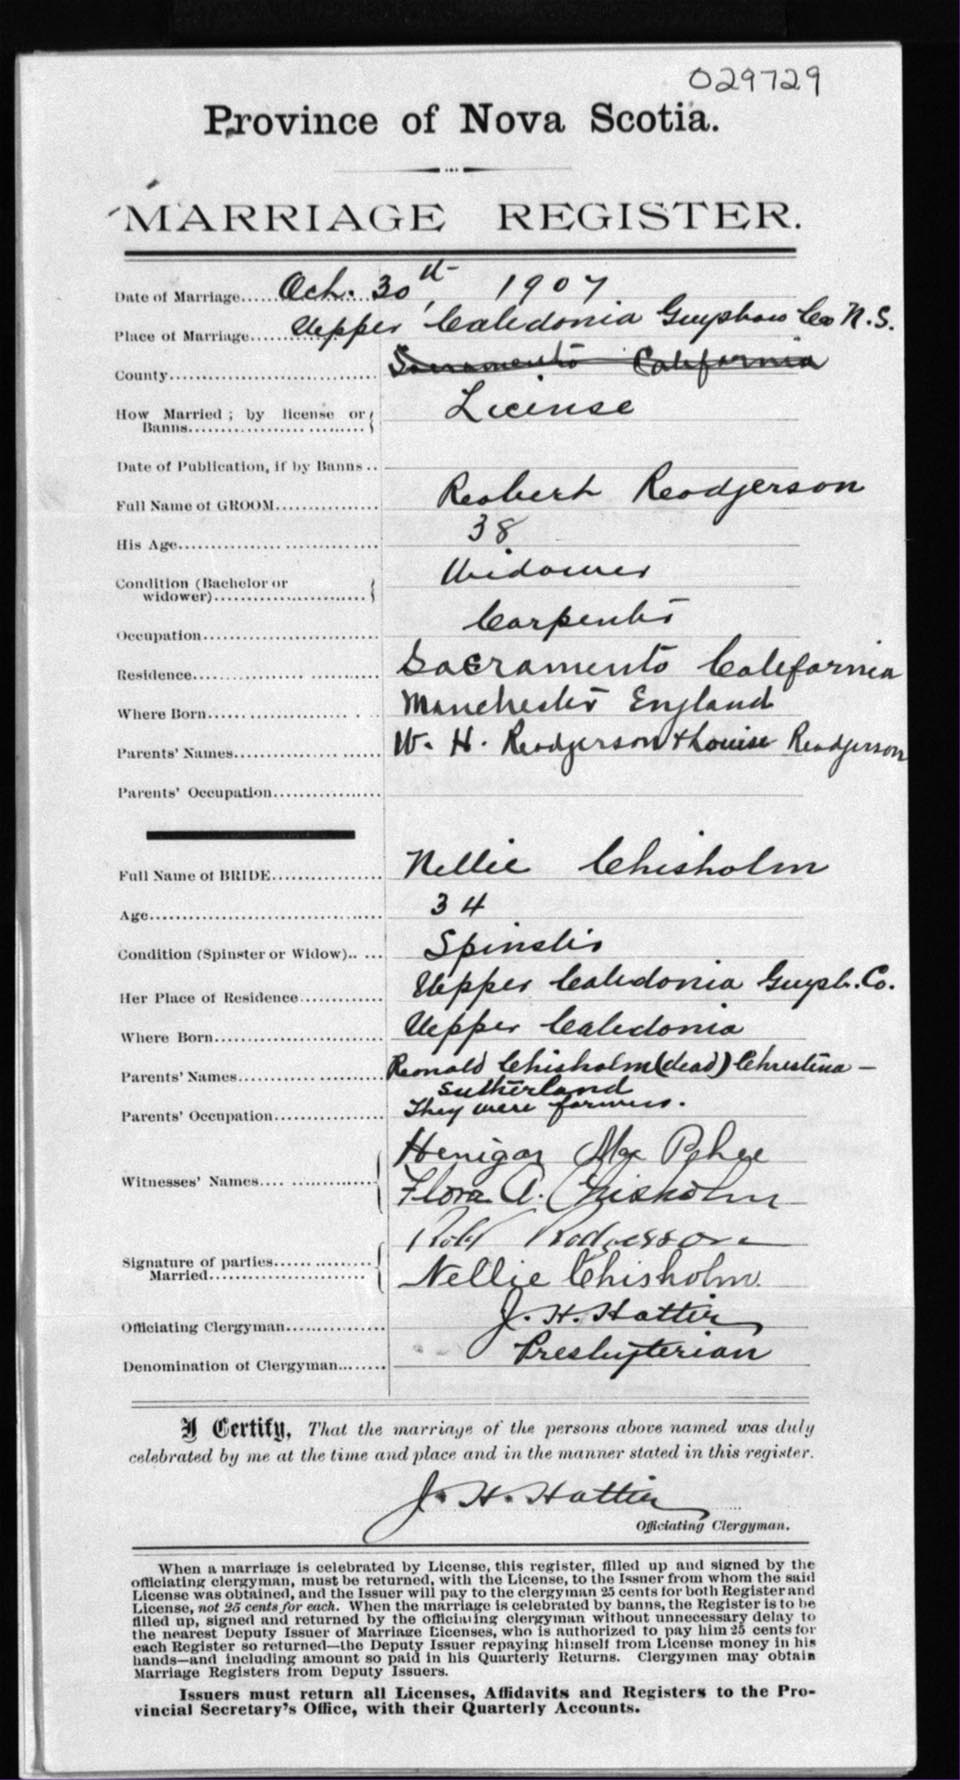 029729
Province of Nova Scotia.
MARRIAGE REGISTER.
Date of Marriage..... Oct. 30th, 1907
Place of Marriage....... Upper Caledonia Guysboro Co N.S.
County............................. Sacramento California
How Married; by license or
Banns............................. License
Date of Publication, if by Banns..
Full Name of GROOM............... Robert Rodgerson
His Age............................. 38
Condition (Bachelor or
widower)....................... Widower
Occupation......................... Carpenter
Residence........................... Sacramento California
Where Born......................... Manchester England
Parents' Names..................... W. H. Rodgerson & Louise Rodgerson
Parents' Occupation................
Full Name of BRIDE................ Nellie Chisholm
Age................................. 34
Condition (Spinster or Widow)..... Spinster
Her Place of Residence............ Upper Caledonia Guysb. Co.
Where Born......................... Upper Caledonia
Parents' Names..................... Ronald Chisholm (dead) Christina –
Sutherland
Parents' Occupation................ They were farmers.
Henigar Mac Phee
Witnesses' Names.... Flora A. Chisholm
Robt Rodgerson
Signature of parties
Married....................... Nellie Chisholm
Officiating Clergyman.............. J. H. Hattie
Denomination of Clergyman........ Presbyterian
I Certify, That the marriage of the persons above named was duly
celebrated by me at the time and place and in the manner stated in this register.
J. H. Hattie
Officiating Clergyman.
When a marriage is celebrated by License, this register, filled up and signed by the
officiating clergyman, must be returned, with the License, to the Issuer from whom the said
License was obtained, and the Issuer will pay to the clergyman 25 cents for both Register and
License, not 25 cents for each. When the marriage is celebrated by banns, the Register is to be
filled up, signed and returned by the officiating clergyman without unnecessary delay to
the nearest Deputy Issuer of Marriage Licenses, who is authorized to pay him 25 cents for
each Register so returned—the Deputy Issuer repaying himself from License money in his
hands—and including amount so paid in his Quarterly Returns. Clergymen may obtain
Marriage Registers from Deputy Issuers.
Issuers must return all Licenses, Affidavits and Registers to the Pro-
vincial Secretary's Office, with their Quarterly Accounts.